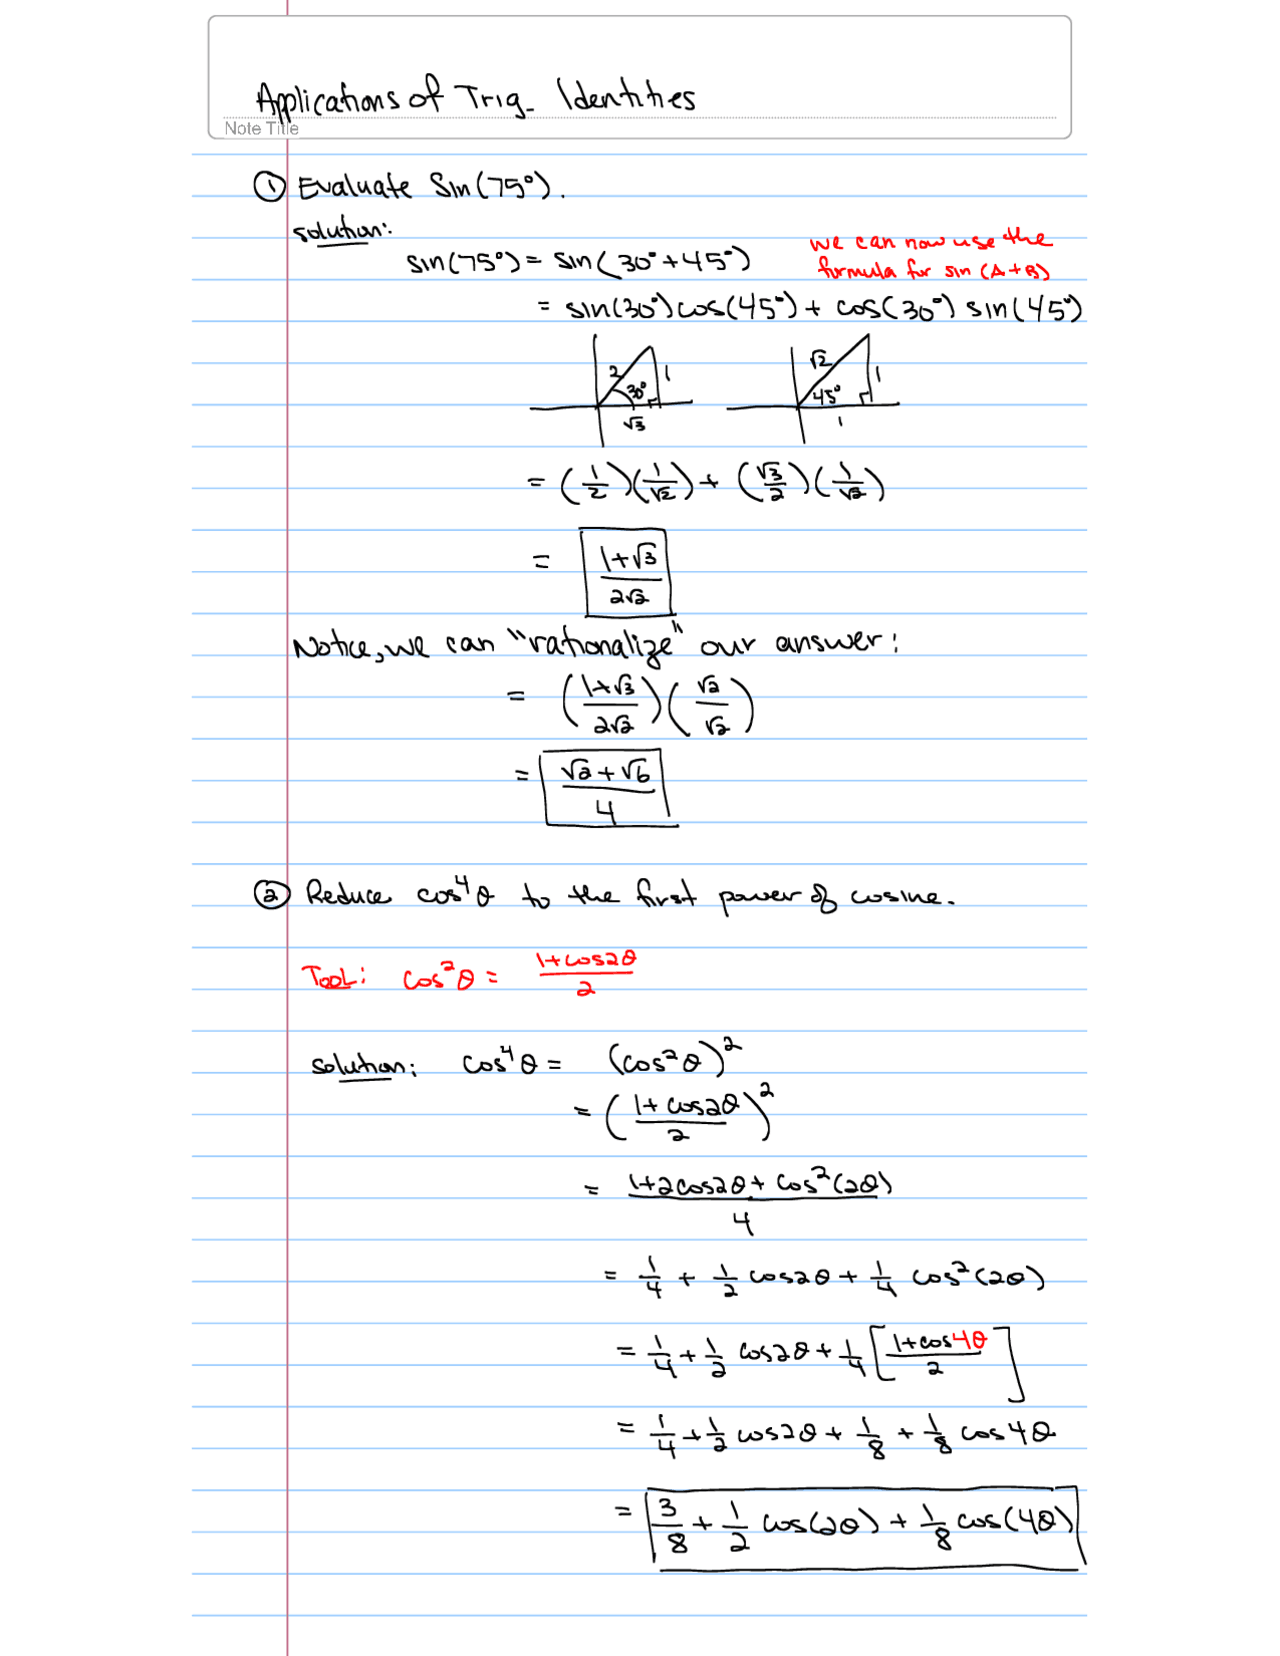 Applications of Trig. Identities
Note Title
① Evaluate Sin(75°).
solution:
sin(75°) = sin(30°+45°)
we can now use the
formula for sin (A+B)
= sin(30°)cos(45°) + cos(30°) sin(45°)
2 30° 1 √3
√2 45° 1 1
= (1/2)(1/√2) + (√3/2)(1/√2)
= (1+√3)/(2√2)
Notice, we can "rationalize" our answer:
= ((1+√3)/(2√2))(√2/√2)
= (√2+√6)/4
② Reduce cos⁴θ to the first power of cosine.
TOOL: cos²θ = (1+cos2θ)/2
solution: cos⁴θ = (cos²θ)²
= ((1+cos2θ)/2)²
= (1+2cos2θ+cos²(2θ))/4
= 1/4 + 1/2 cos2θ + 1/4 cos²(2θ)
= 1/4 + 1/2 cos2θ + 1/4 [(1+cos4θ)/2]
= 1/4 + 1/2 cos2θ + 1/8 + 1/8 cos4θ
= 3/8 + 1/2 cos(2θ) + 1/8 cos(4θ)